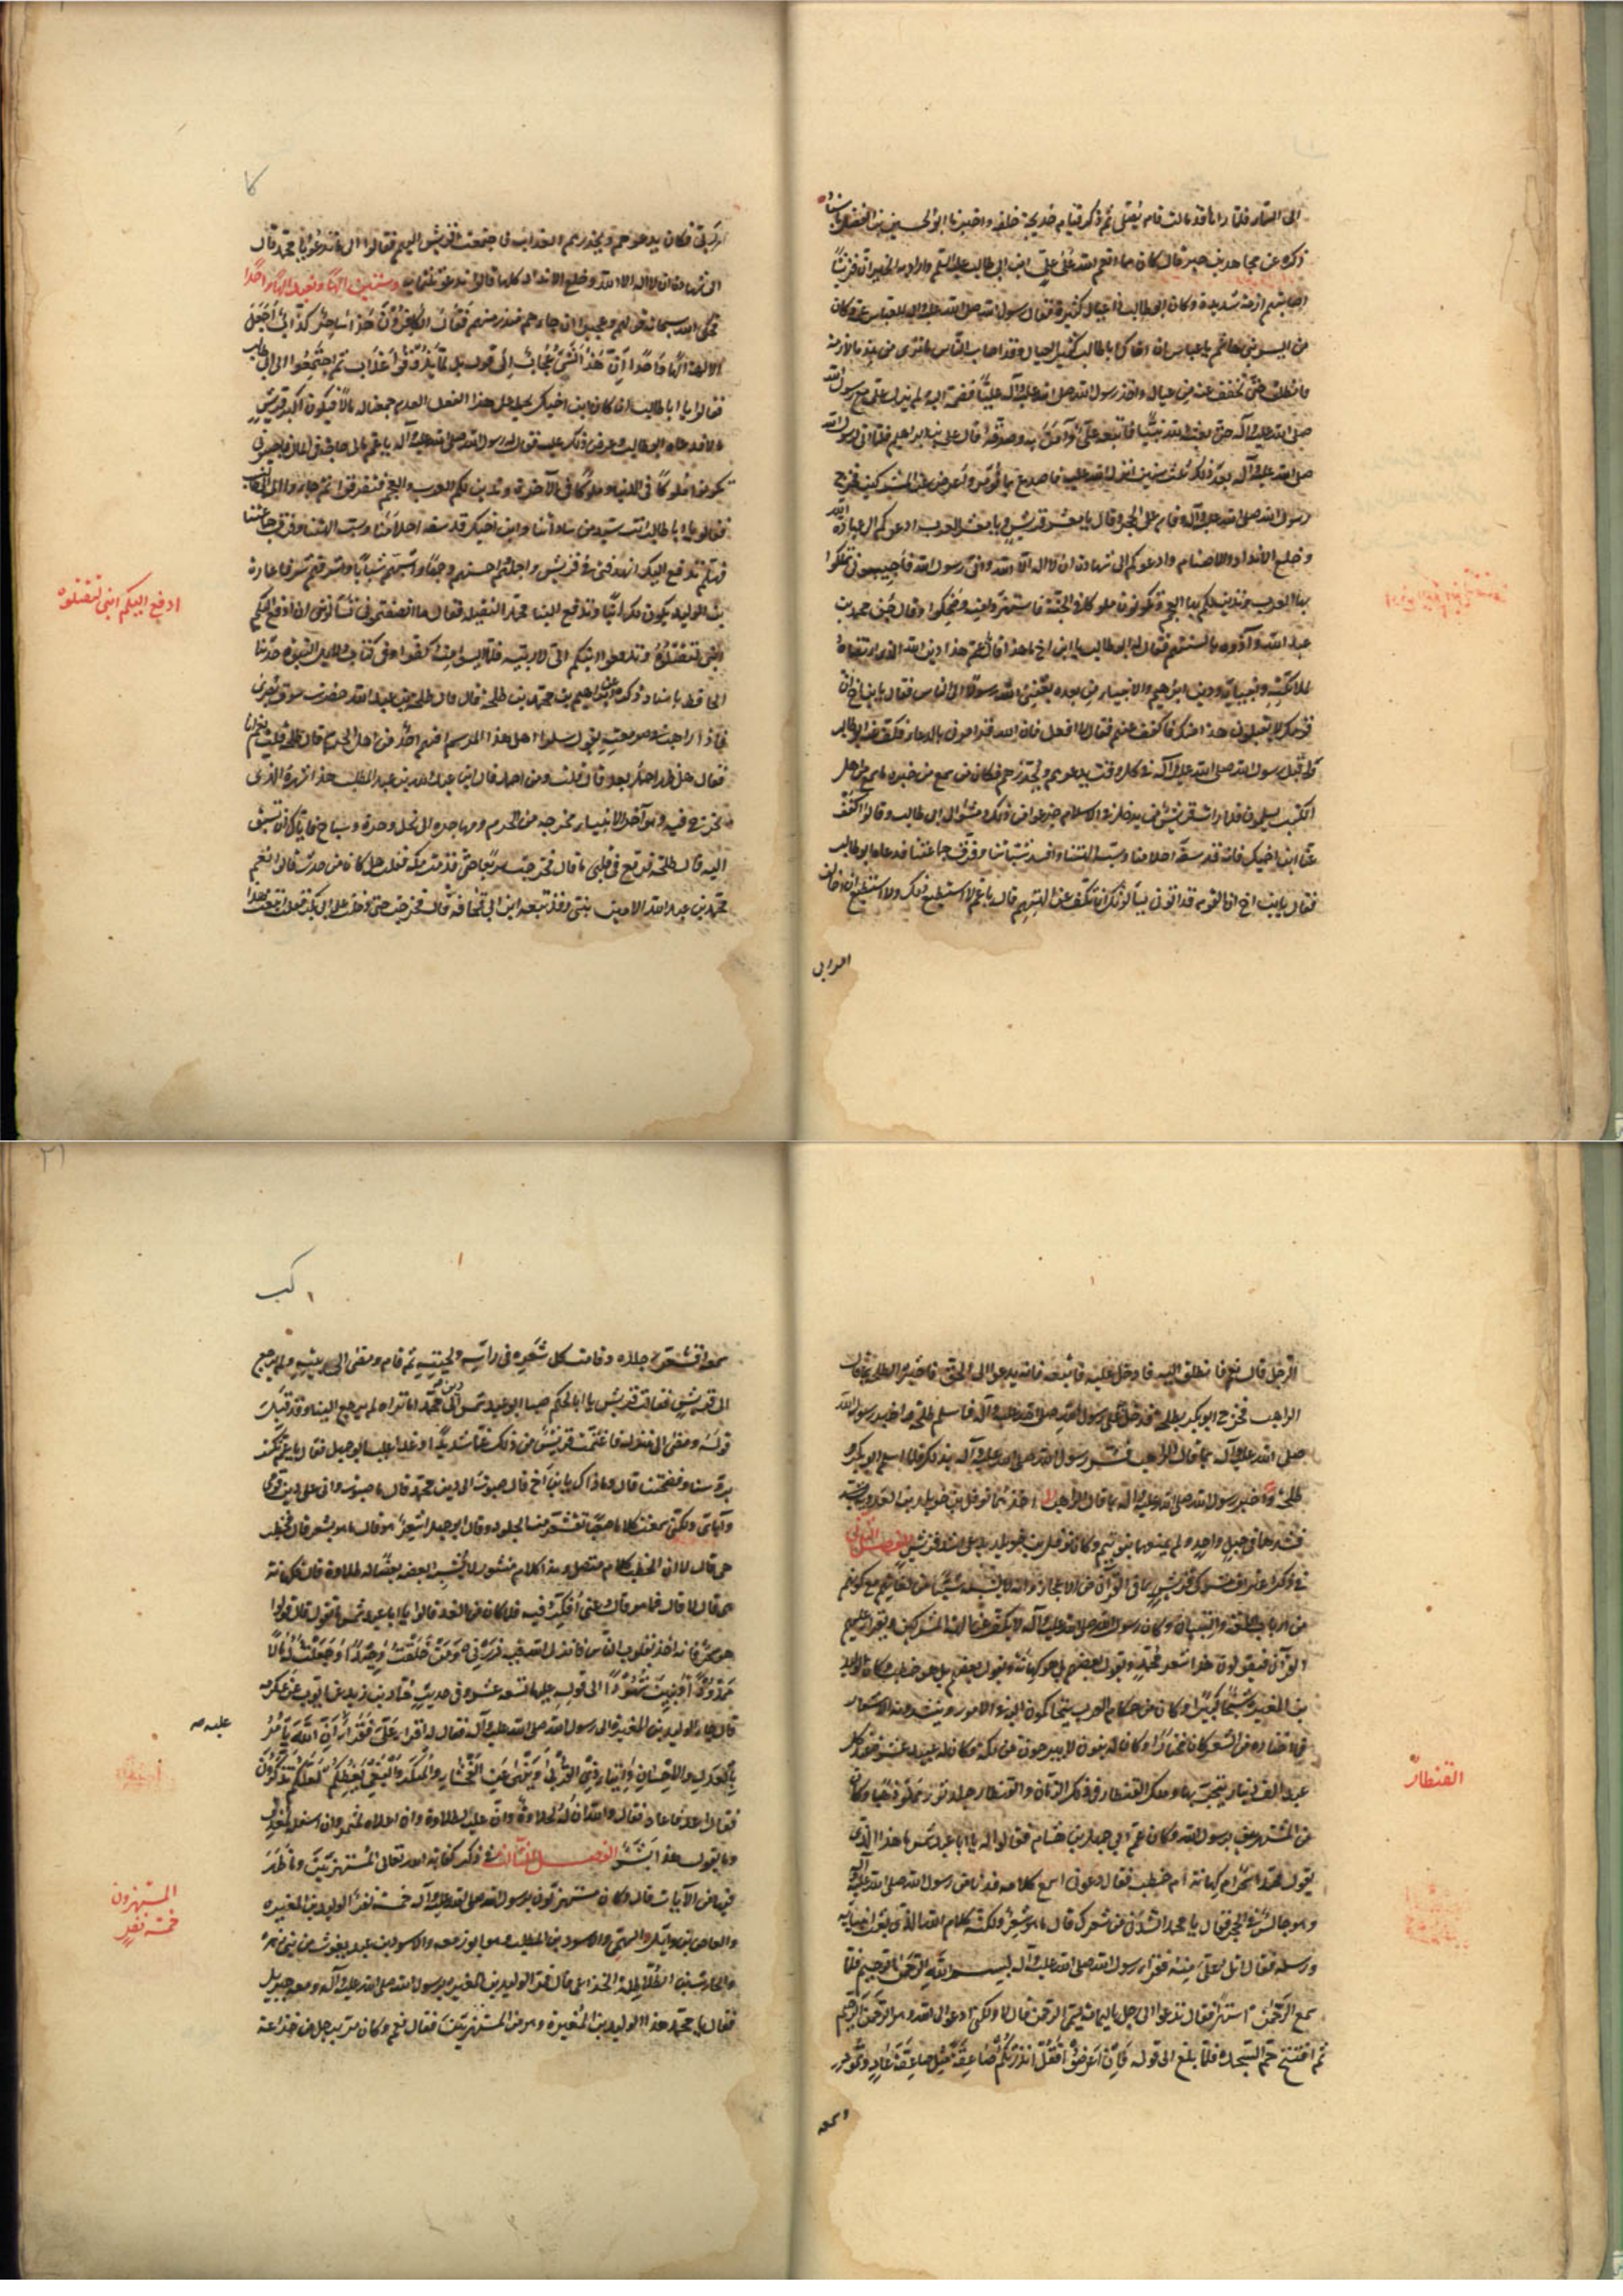 الى السماء فلما راها قد مالت قام يصلي ثم ذكر قيام خديجة خلفه واخبرنا ابو الحسين بن الفضل باسناد
ذكره عن مجاهد بن جبر قال كان مما انعم الله على علي ابن ابي طالب عليه السلم واراد به الخير ان قريشًا
اصابتهم ازمة شديدة وكان ابي طالب ذا عيال كثيرة فقال رسول الله صلى الله عليه واله للعباس عمه وكان
من ايسر بني هاشم يا عباس ان اخاك ابا طالب كثير العيال وقد اصاب الناس ما ترى من هذه الازمة
فانطلق حتى نخفف عنه من عياله واخذ رسول الله صلى الله عليه وآله عليًّا فضمه اليه فلم يزل علي مع رسول الله
صلى الله عليه وآله حتى بعثه الله نبيًّا فاتبعه علي وآمن به وصدقه قال علي بن ابراهيم فلما اتى لرسول الله
صلى الله عليه وآله بعد ذلك ثلث سنين انزل الله عليه فاصدع بما تؤمر وأعرض عن المشركين فخرج
رسول الله صلى الله عليه وآله وقام على الحجر وقال يا معشر قريش ويا معشر العرب ادعوكم الى عبادة الله
وخلع الانداد والاصنام وادعوكم الى شهادة ان لا اله الا الله واني رسول الله فأجيبوني تملكوا
بها العرب وتدين لكم بها العجم وتكونون ملوكا في الجنة فاستهزؤا منه وضحكوا وقالوا جن محمد بن
عبد الله وآذوه بالسنتهم فقال له ابو طالب يا ابن اخ ما هذا قال يا عم هذا دين الله الذي ارتضاه
لملائكته وانبيائه ودين ابرهيم والانبياء من بعده بعثني الله رسولا الى الناس فقال يا بن اخ ان
قومك لا يقبلون هذا منك فاكفف عنهم فقال لا افعل فان الله قد امرني بالدعاء فكف عنه ابو طالب
واقبل رسول الله صلى الله عليه وآله في كل وقت يدعوهم ويحذرهم فكان من سمع من خبره ما سمع من اهل
الكتب يسلمون فلما رات قريش من يدخل في الاسلام جزعوا من ذلك ومشوا الى ابي طالب وقالوا اكفف
عنا ابن اخيك فانه قد سفه احلامنا وسب الهتنا وافسد شباننا وفرق جماعتنا فدعاه ابو طالب
فقال يا بن اخ ان القوم قد اتوني يسألونك ان تكف عن الهتهم قال يا عم لا استطيع ذلك ولا استطيع ان اخالف
امر ربي فكان يدعوهم ويحذرهم العذاب فاجتمعت قريش اليهم فقالوا الى ما تدعونا يا محمد قال
الى شهادة ان لا اله الا الله وخلع الانداد كلها قالوا ندع ثلثمائة وستين الهًا ونعبد الهًا واحدًا
فحكى الله سبحانه قولهم وعجبوا ان جاءهم منذر منهم فقال الكافرون هذا ساحر كذاب أجعل
الالهة الهًا واحدًا ان هذا لشيء عجاب الى قوله بل لما يذوقوا عذاب ثم اجتمعوا الى ابي طالب
فقالوا يا ابا طالب ان كان ابن اخيك يحمله على هذا الفعل العدم جمعنا له مالًا فيكون اكثر قريش
مالا فدعاه ابو طالب وعرض ذلك عليه فقال له رسول الله صلى الله عليه وآله يا عم مالي حاجة في المال فاجيبوني
تكونوا ملوكًا في الدنيا وملوكًا في الآخرة وتدين لكم العرب والعجم فتفرقوا ثم جاؤا الى ابي طالب
فقالوا يا ابا طالب انت سيد من ساداتنا وابن اخيك قد سفه احلامنا وسب الهتنا وفرق جماعتنا
فهلم ندفع اليك انهد فتى في قريش واجملهم واحسنهم وجهًا واشبهم شبابًا واشرفهم شرفا عمارة
بن الوليد يكون لك ابنًا وتدفع الينا محمد النقتله فقال ما انصفتموني تسألوني ان ادفع اليكم
ابني لتقتلوه
ادفع اليكم ابني لتقتلوه
الحافظ باسناد ذكره عن ابراهيم بن محمد بن طلحة قال قال طلحة بن عبيد الله حضرت سوق بصرى
فاذا راهب في صومعته يقول سلوا اهل هذا الموسم افيهم احد من اهل الحرم قال طلحة فقلت نعم انا
فقال هل ظهر احمد بعد قال قلت ومن احمد قال ابن عبد الله بن عبد المطلب هذا شهره الذي
يخرج فيه وهو آخر الانبياء مخرجه من الحرم ومهاجره الى نخل وحرة وسباخ فاياك ان تسبق
اليه قال طلحة فوقع في قلبي ما قال فخرجت سريعًا حتى قدمت مكة فقلت هل كان من حدث قالوا نعم
محمد بن عبد الله الامين تنبى وقد تبعه ابن ابي قحافة قال فخرجت حتى دخلت على ابي بكر فقلت اتبعت هذا
الرجل قال نعم فانطلق اليه فادخل عليه فاتبعه فانه يدعو الى الحق فاخبره طلحة بما قال
الراهب فخرج ابو بكر بطلحة فدخل على رسول الله صلى الله عليه وآله فاسلم طلحة واخبر رسول الله
صلى الله عليه وآله بما قال الراهب فسر رسول الله صلى الله عليه وآله بذلك فلما اسلم ابو بكر و
طلحة واخبر رسول الله صلى الله عليه وآله بما قال الراهب اخذهما نوفل بن خويلد بن العدوية
فشدهما في حبل واحد ولم يمنعهما بنو تيم وكان نوفل بن خويلد يدعى اسد قريش الفصل الثاني
في ذكر اعتراف مشركي قريش بما في القرآن من الاعجاز وانه لا يشبه شيئًا من لغاتهم مع كونهم
من ارباب اللغة والتبيان وكان رسول الله صلى الله عليه وآله لا يكف عن الهة المشركين ويقرأ عليهم
القرآن فيقولون هذا شعر محمد ويقول بعضهم بل هو كهانة ويقول بعضهم بل هو خطب وكان الوليد
بن المغيرة شيخًا كبيرًا وكان من حكام العرب يتحاكمون اليه في الامور وينشدونه الاشعار
فما اختاره من الشعر كان مختارًا وكان له بنون لا يبرحون من مكة وكان له عبيد عشرة عند كل
عبد الف دينار يتجر بها وملك القنطار في ذلك الزمان والقنطار جلد ثور مملو ذهبًا وكان
القنطار
من المستهزئين برسول الله وكان عم ابي جهل بن هشام فقالوا له يا ابا عبد شمس ما هذا الذي
يقول محمد اسحر ام كهانة ام خطب فقال دعوني اسمع كلامه فدنا من رسول الله صلى الله عليه وآله
وهو جالس في الحجر فقال يا محمد انشدني من شعرك قال ما هو شعر ولكنه كلام الله الذي بعث انبيائه
ورسله فقال اتل علي منه فقرا رسول الله صلى الله عليه وآله بسم الله الرحمن الرحيم فلما
سمع الرحمن استهزأ فقال تدعوا الى رجل باليمامة يسمى الرحمن قال لا ولكني ادعو الى الله وهو الرحمن الرحيم
ثم افتتح حم السجدة فلما بلغ الى قوله فإن اعرضوا فقل انذرتكم صاعقة مثل صاعقة عاد وثمود
وسمعه
سمعه اقشعر جلده وقامت كل شعرة في راسه ولحيته ثم قام ومضى الى بيته ولم يرجع
الى قريش فقالت قريش يا ابا الحكم صبا ابو عبد شمس الى دين محمد اما تراه لم يرجع الينا وقد قبل
قوله ومضى الى منزله فاغتمت قريش من ذلك غمًا شديدًا وغدا عليه ابو جهل فقال يا عم نكست
برؤسنا وفضحتنا قال وما ذاك يا بن اخ قال صبوت الى دين محمد قال ما صبوت واني على دين قومي
وآبائي ولكني سمعت كلاما صعبًا تقشعر منه الجلود وقال ابو جهل اشعر هو قال ما هو بشعر قال فخطب
هي قال لا ان الخطب كلام متصل وهذا كلام منثور لا يشبه بعضه بعضًا له طلاوة قال فكهانة
هي قال لا قال فما هو قال دعني أفكر فيه فلما كان من الغد قالوا يا ابا عبد شمس ما تقول قال قولوا
هو سحر فانه اخذ بقلوب الناس فانزل الله فيه ذرني ومن خلقت وحيدًا وجعلت له مالًا
ممدودًا وبنين شهودًا الى قوله عليها تسعة عشر وفي حديث حماد بن زيد عن ايوب عن عكرمه
قال جاء الوليد بن المغيرة الى رسول الله صلى الله عليه وآله فقال له اقرا علي فقرأ ان الله يأمر
عليه صه
بالعدل والاحسان وايتاء ذي القربى وينهى عن الفحشاء والمنكر والبغي يعظكم لعلكم تذكرون
فقال اعد فاعاد فقال والله ان له لحلاوة وان عليه لطلاوة وان اعلاه لمثمر وان اسفله لمغدق
وما يقول هذا بشر الفصل الثالث في ذكر كفاية الله تعالى المستهزئين وما ظهر
فيها من الآيات قال وكان مستهزؤن برسول الله صلى الله عليه وآله خمسة نفر الوليد بن المغيرة
المستهزون
خمسة نفر
والعاص بن وائل السهمي والاسود بن المطلب وهو ابو زمعه والاسود بن عبد يغوث من بني زهرة
والحارث بن الطلاطلة الخزاعي قال فمر الوليد بن المغيرة برسول الله صلى الله عليه وآله ومعه جبريل
فقال يا محمد هذا الوليد بن المغيرة وهو من المستهزئين فقال نعم وكان مر برجل من خزاعة